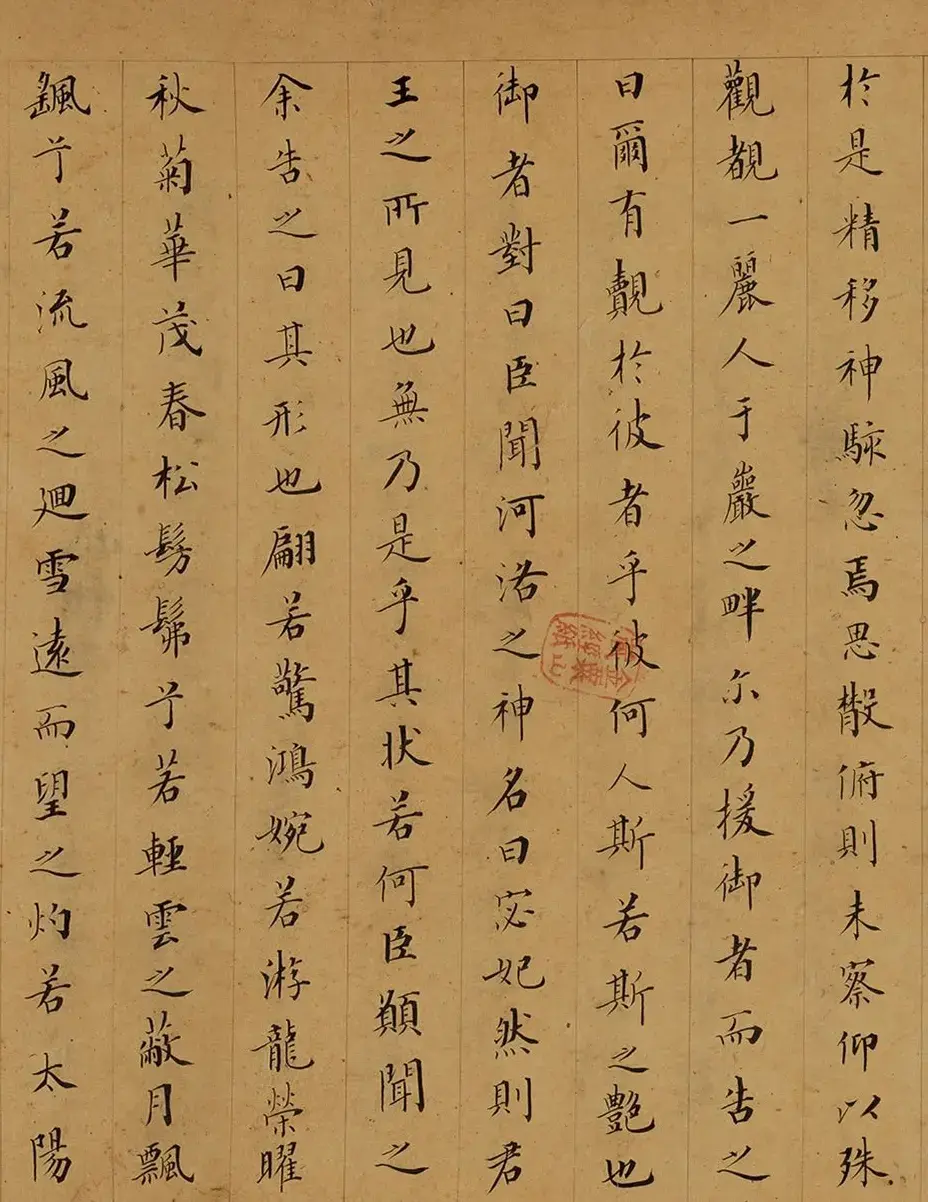 於是精移神駭忽焉思散俯則未察仰以殊
觀覩一麗人于巖之畔尓乃援御者而告之
曰爾有覿於彼者乎彼何人斯若斯之艷也
御者對曰臣聞河洛之神名曰宓妃然則君
王之所見也無乃是乎其狀若何臣願聞之
余告之曰其形也翩若驚鴻婉若游龍榮曜
秋菊華茂春松髣髴兮若輕雲之蔽月飄
颻兮若流風之迴雪遠而望之灼若太陽